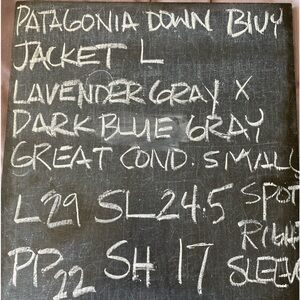 PATAGONIA DOWN BIVY
JACKET L
LAVENDER GRAY X
DARK BLUE GRAY
GREAT COND. SMALL
L 29 SL 24.5 SPOT
RIGHT
PP 22 SH 17 SLEEV